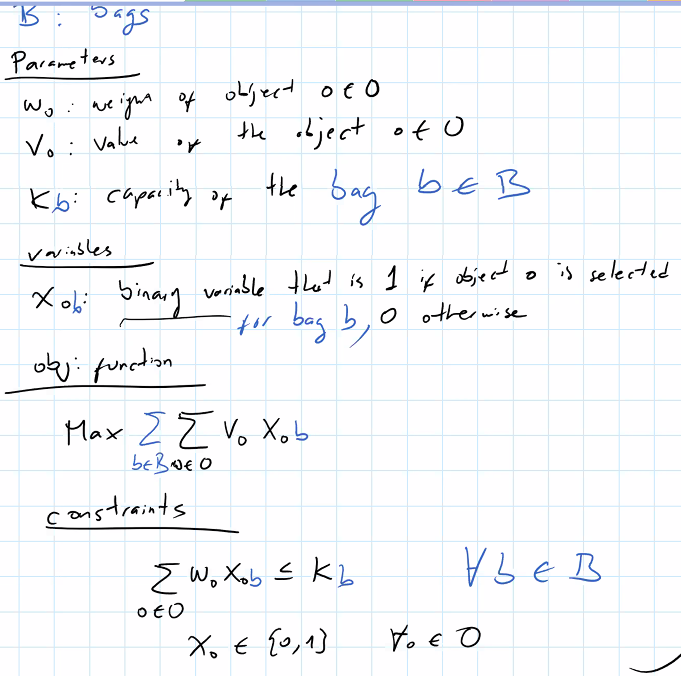 B : bags
Parameters
w₀ : weight of object o ∈ O
V₀ : value of the object o ∈ O
K_b : capacity of the bag b ∈ B
variables
X_ob : binary variable that is 1 if object o is selected
for bag b, 0 otherwise
obj : function
Max ∑_{b∈B} ∑_{o∈O} V₀ X_ob
constraints
∑_{o∈O} w₀ X_ob ≤ K_b ∀ b ∈ B
X₀ ∈ {0,1} ∀o ∈ O